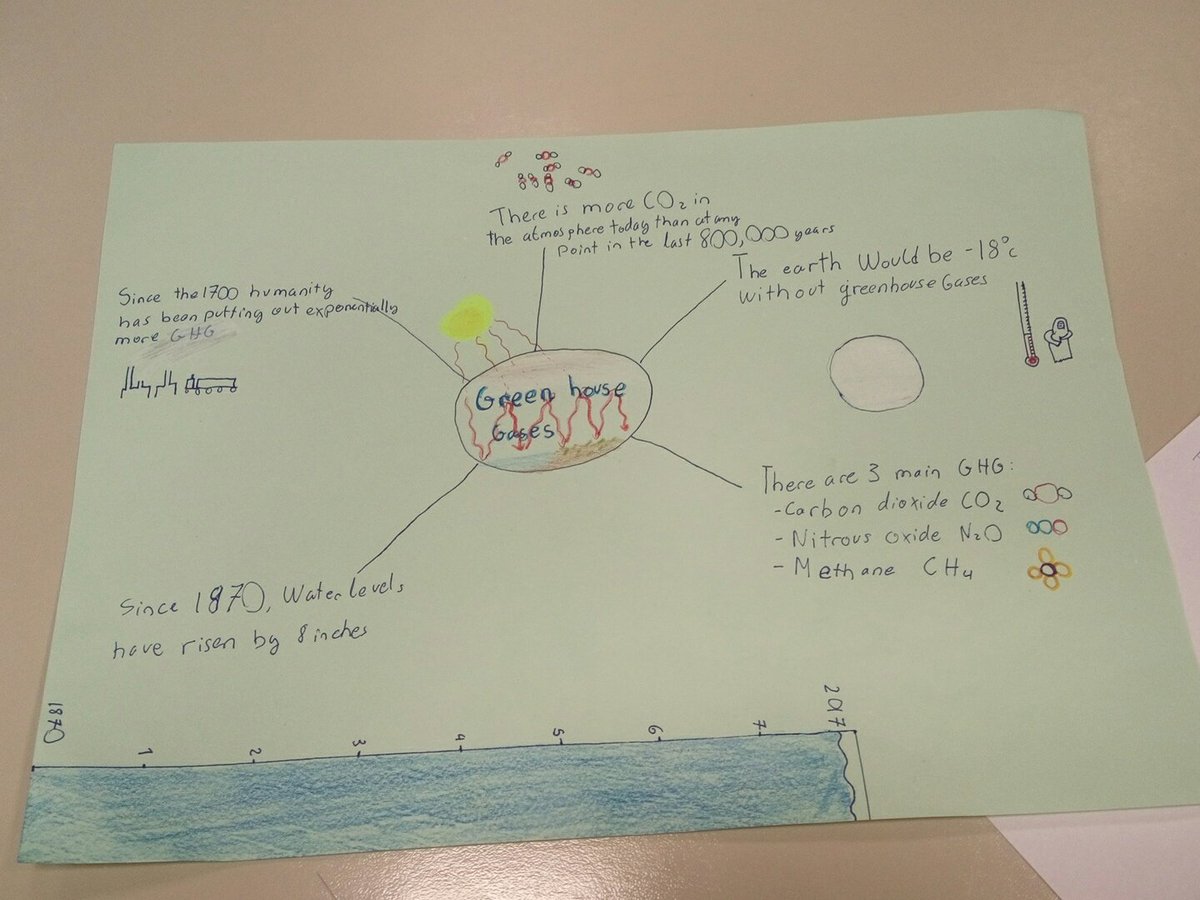 There is more CO₂ in
the atmosphere today than at any
point in the last 800,000 years
The earth Would be -18°c
without greenhouse Gases
Since the 1700 humanity
has been putting out exponentially
more GHG
Green house
Gases
There are 3 main GHG:
- Carbon dioxide CO₂
- Nitrous oxide N₂O
- Methane CH₄
Since 1870, Water levels
have risen by 8 inches
1870
1
2
3
4
5
6
7
2017